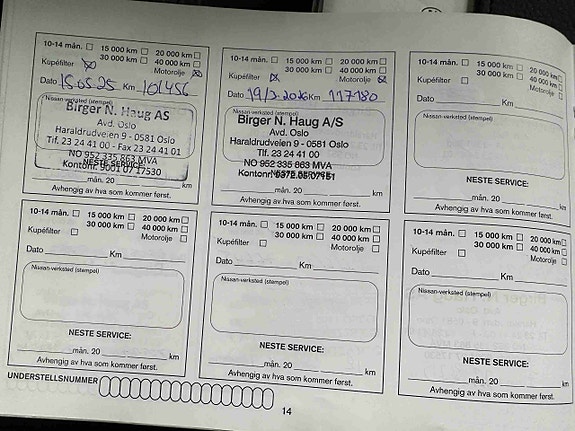 10-14 mån. 15 000 km 20 000 km
30 000 km 40 000 km
Kupéfilter Motorolje
Dato 15.05.25 Km 101456
Nissan-verksted (stempel)
Birger N. Haug AS
Avd. Oslo
Haraldrudveien 9 - 0581 Oslo
Tlf. 23 24 41 00 - Fax 23 24 41 01
NO 952 335 863 MVA
NESTE SERVICE:
Kontonr. 9001 07 17530
mån. 20 km
Avhengig av hva som kommer først.
10-14 mån. 15 000 km 20 000 km
30 000 km 40 000 km
Kupéfilter Motorolje
Dato 19/2.2026 Km 117180
Nissan-verksted (stempel)
Birger N. Haug A/S
Avd. Oslo
Haraldrudveien 9 - 0581 Oslo
Tlf. 23 24 41 00
NO 952 335 863 MVA
NESTE SERVICE:
Kontonr.
mån. 20 km
Avhengig av hva som kommer først.
10-14 mån. 15 000 km 20 000 km
30 000 km 40 000 km
Kupéfilter Motorolje
Dato Km
Nissan-verksted (stempel)
NESTE SERVICE:
mån. 20 km
Avhengig av hva som kommer først.
10-14 mån. 15 000 km 20 000 km
30 000 km 40 000 km
Kupéfilter Motorolje
Dato Km
Nissan-verksted (stempel)
NESTE SERVICE:
mån. 20 km
Avhengig av hva som kommer først.
10-14 mån. 15 000 km 20 000 km
30 000 km 40 000 km
Kupéfilter Motorolje
Dato Km
Nissan-verksted (stempel)
NESTE SERVICE:
mån. 20 km
Avhengig av hva som kommer først.
10-14 mån. 15 000 km 20 000 km
30 000 km 40 000 km
Kupéfilter Motorolje
Dato Km
Nissan-verksted (stempel)
NESTE SERVICE:
mån. 20 km
Avhengig av hva som kommer først.
UNDERSTELLSNUMMER
14